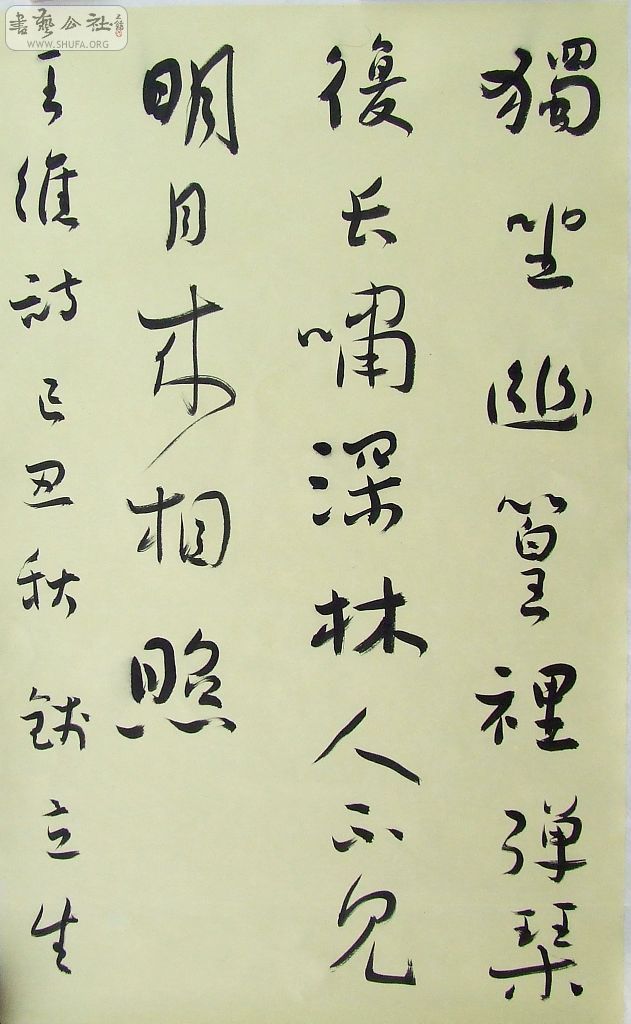 書藝公社
WWW.SHUFA.ORG
獨坐幽篁裡彈琴
復長嘯深林人不見
明月来相照
王維詩己丑秋錢立生